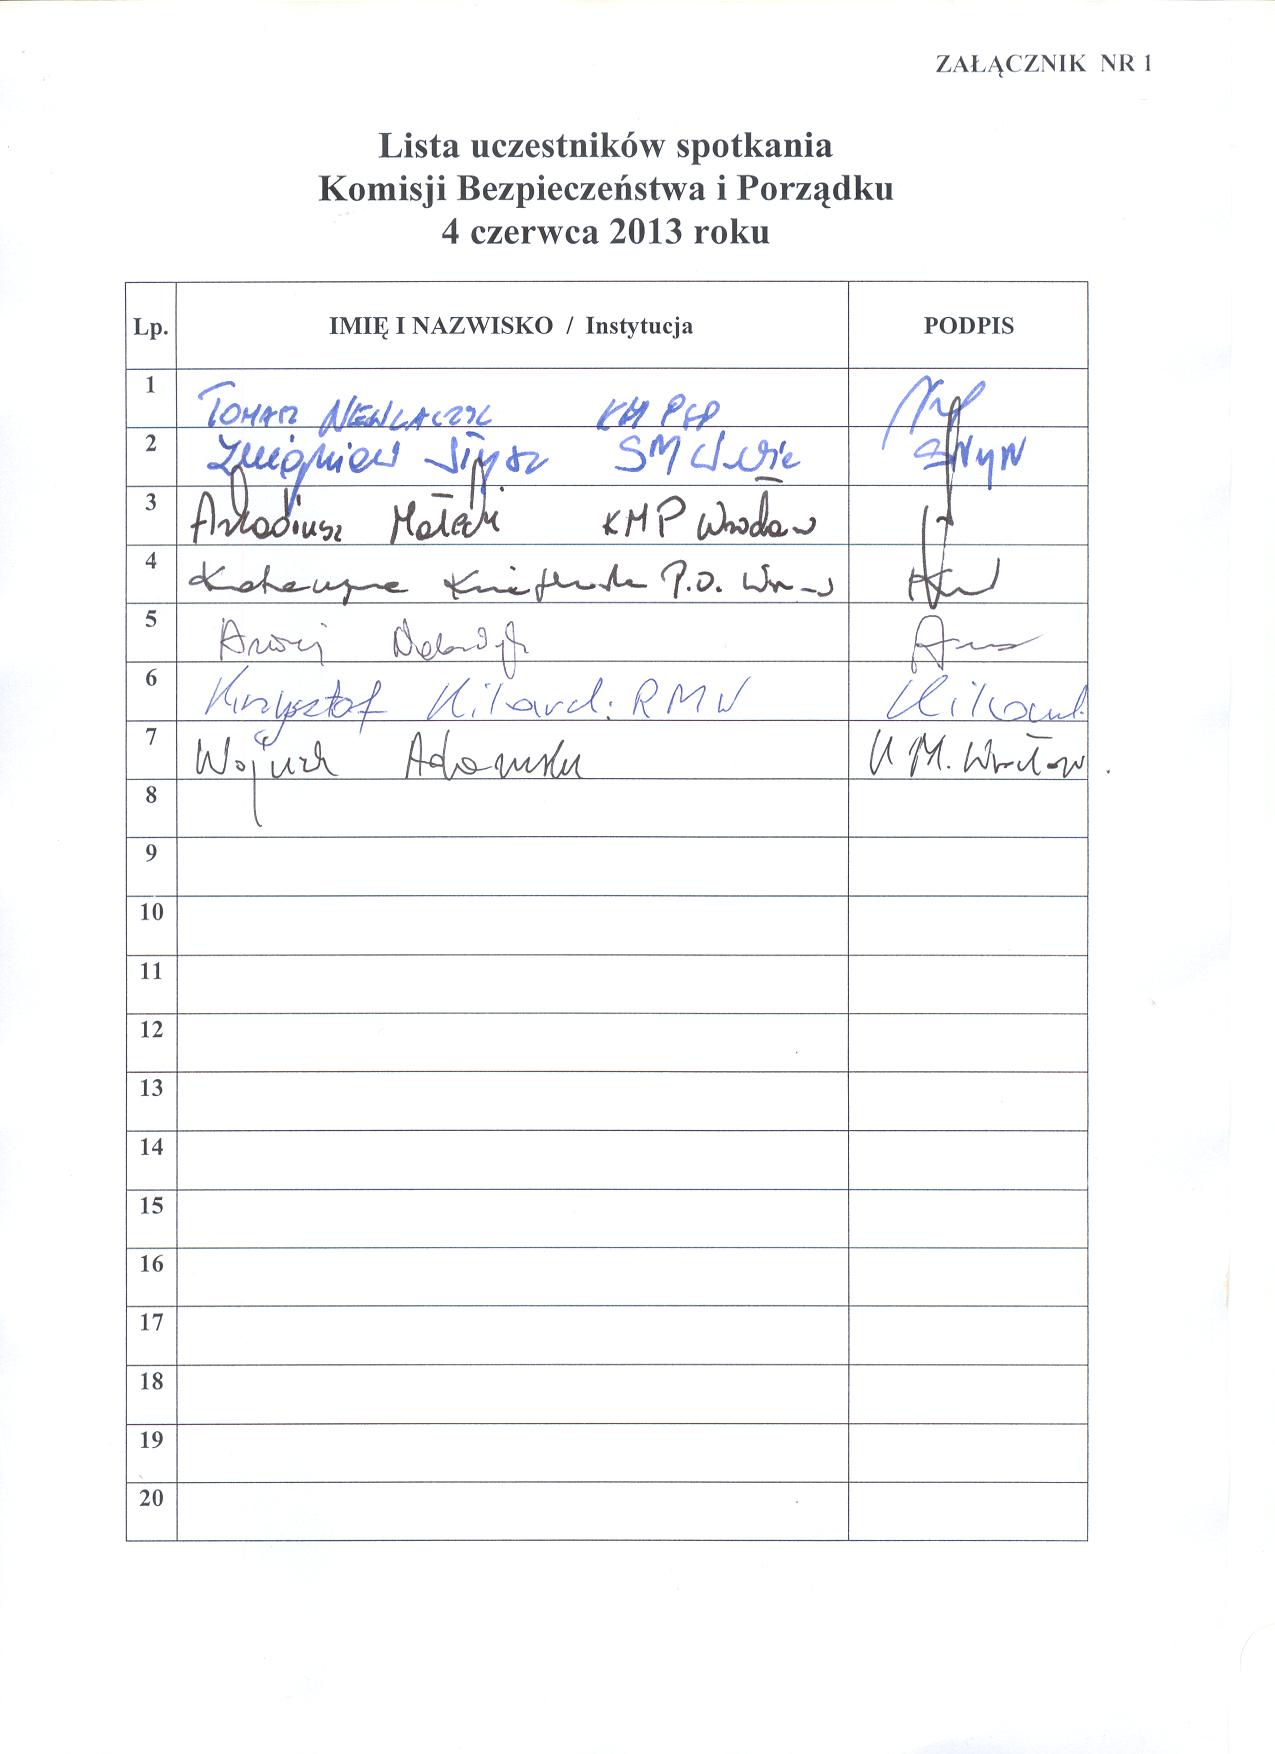 ZAŁĄCZNIK NR 1
Lista uczestników spotkania
Komisji Bezpieczeństwa i Porządku
4 czerwca 2013 roku
Lp. IMIĘ I NAZWISKO / Instytucja PODPIS
1 TOMASZ KM PSP
2 Zbigniew SM
3 Arkadiusz Małecki KMP Wrocław
4 Katarzyna P.O.
5
6 Krzysztof Kilarski RMW
7 Wojciech Adamski U M. Wrocław
8
9
10
11
12
13
14
15
16
17
18
19
20